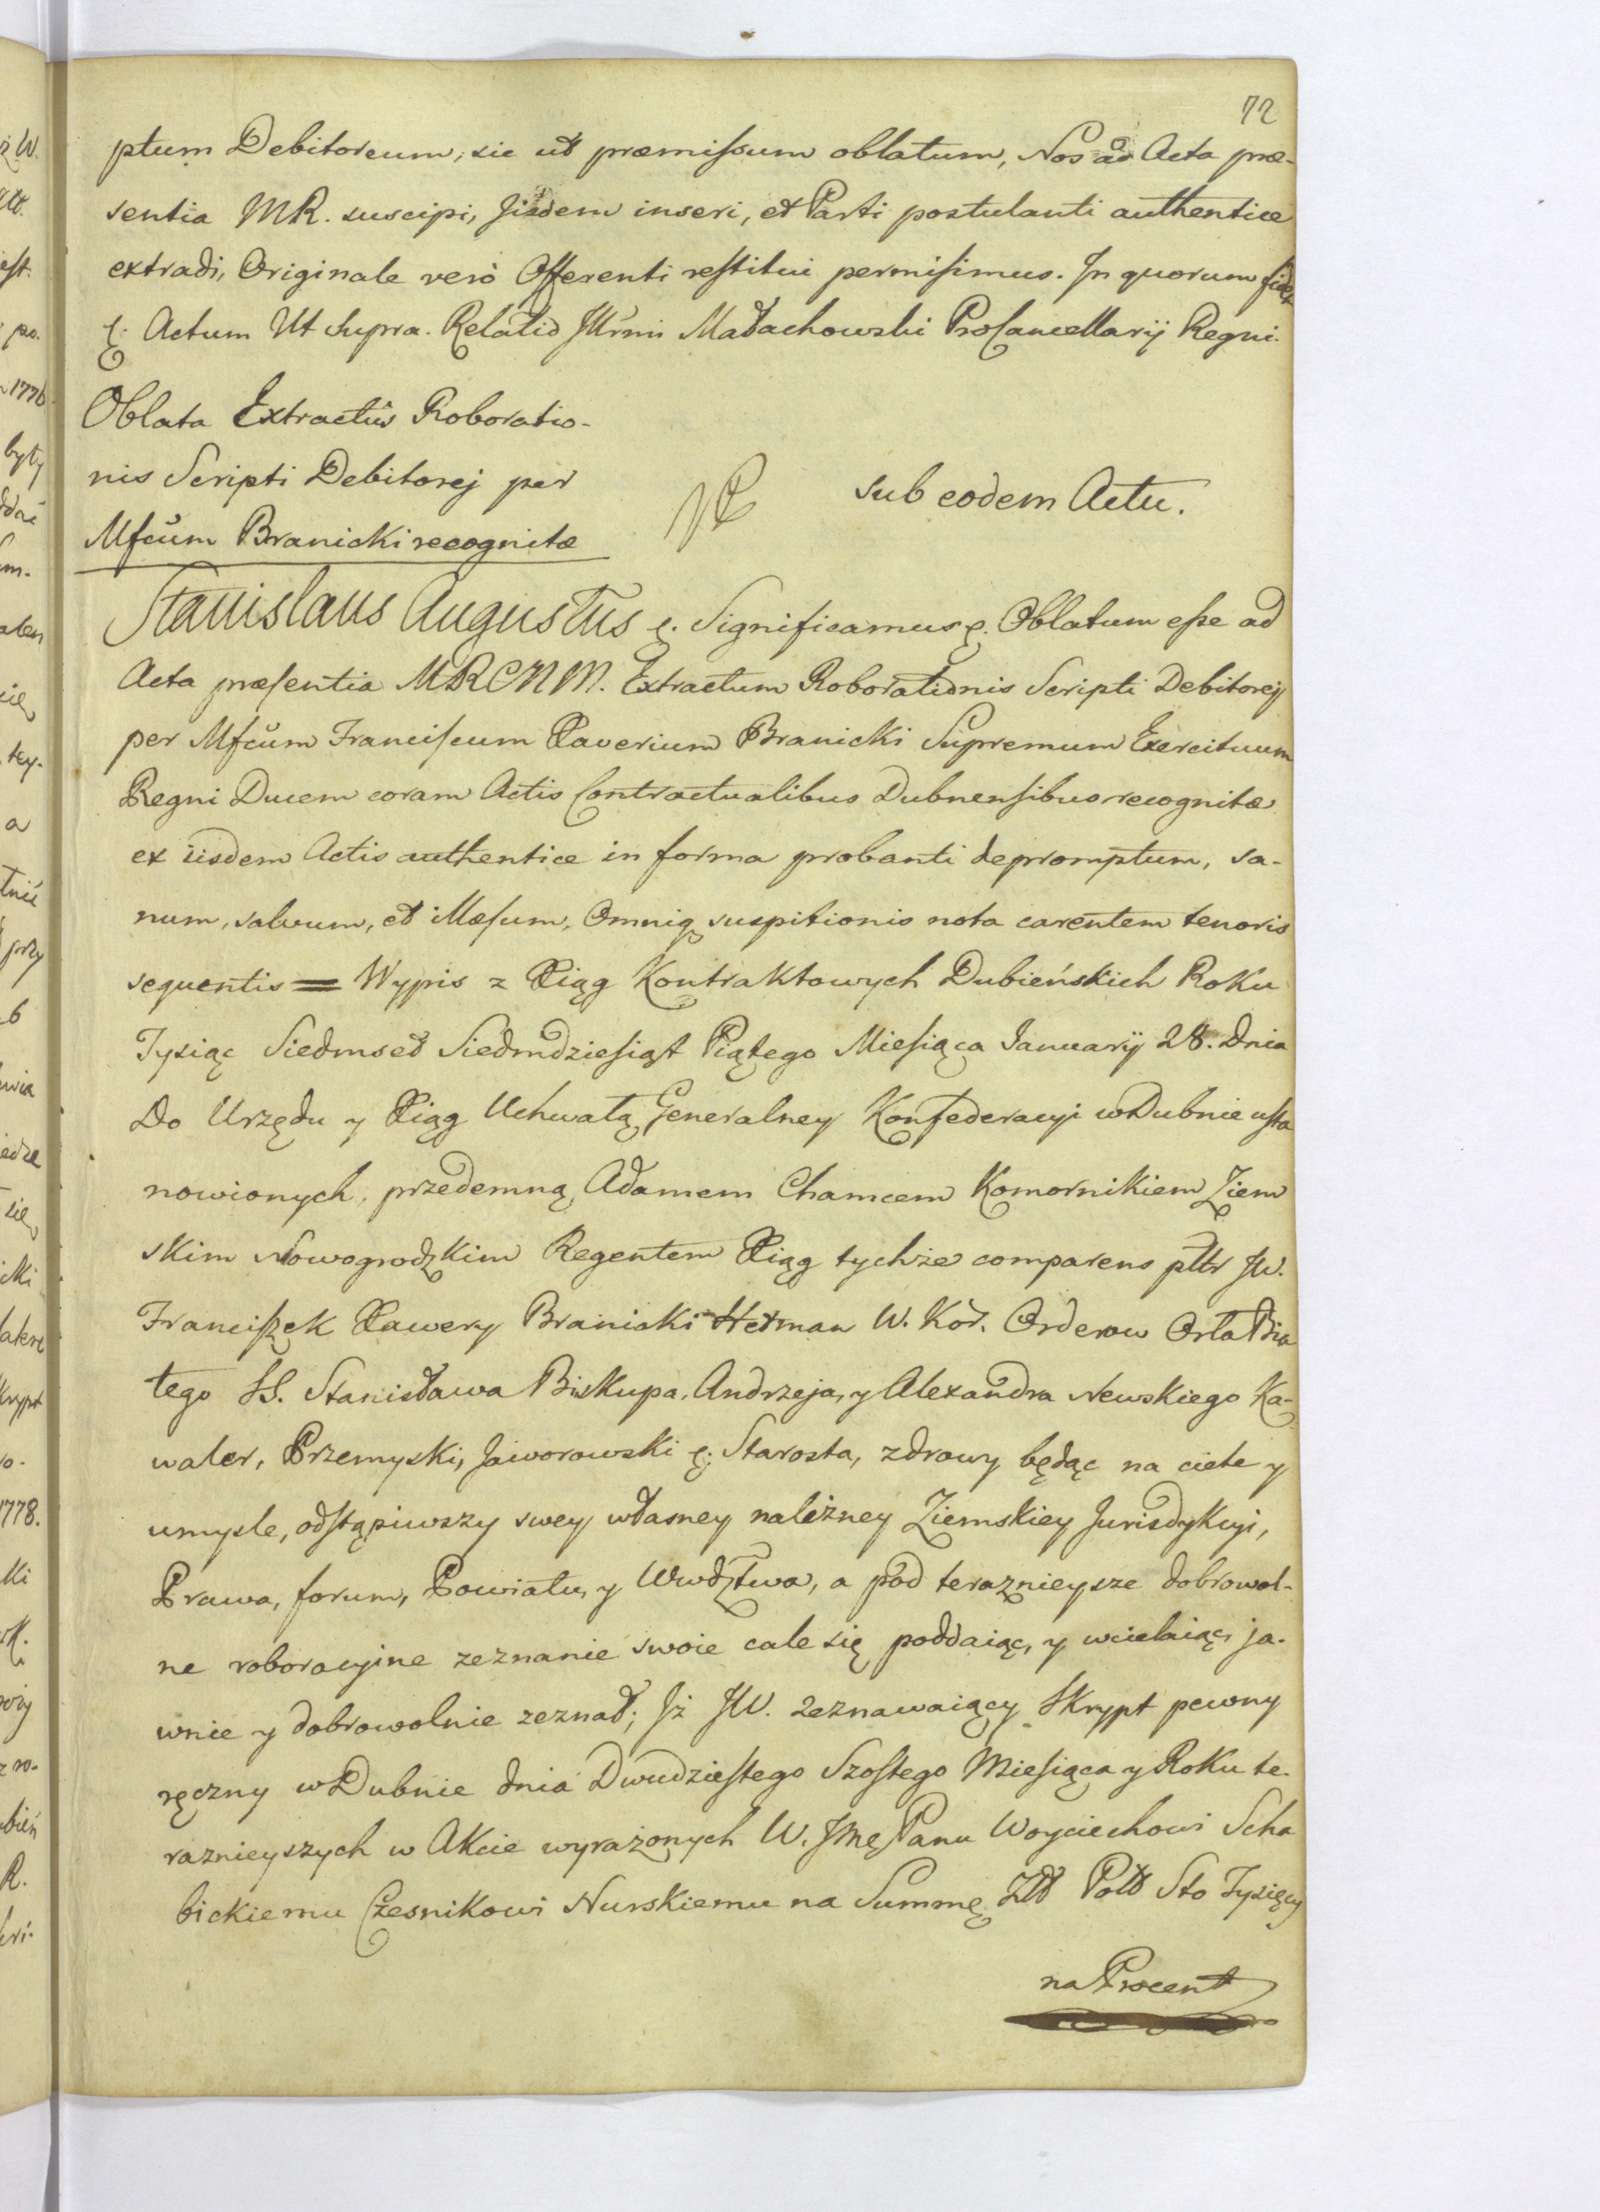 72
ptum Debitoreum, sic ut præmissum oblatum, Nos ad Acta præ-
sentia MR. suscipi, Jisdem inseri, et Parti postulanti authentice
extradi, Originale verò Offerenti restitui permisimus. In quorum fidem
&. Actum Ut supra. Relatio Jllrmi Małachowski ProCancellarij Regni.
Oblata Extractûs Roboratio-
nis Scripti Debitorej per
Mfcum Branicki recognitæ
sub eodem Actu.
Stanislaus Augustus &. Significamus &. Oblatum esse ad
Acta præsentia MRCNM. Extractum Roborationis Scripti Debitorej
per Mfcum Franciscum Xaverium Branicki Supremum Exercituum
Regni Ducem coram Actis Contractualibus Dubnensibus recognitæ
ex iisdem Actis authentice in forma probanti depromptum, sa-
num, salvum, et illæsum, Omniq suspitionis nota carentem tenoris
sequentis = Wypis z Xiąg Kontraktowych Dubieńskich Roku
Tysiąc Siedmset Siedmdziesiąt Piątego Miesiąca Januarij 28. Dnia
Do Urzędu y Xiąg Uchwałą Generalney Konfederacyi w Dubnie usta
nowionych, przedemną Adamem Chamcem Komornikiem Ziem
skim Nowogrodzkim Regentem Xiąg tychże comparens pltr JW.
Franciszek Xawery Branicki Hetman W. Kor. Orderow Orła Bia
łego SS. Stanisława Biskupa, Andrzeja, y Alexandra Newskiego Ka-
waler, Przemyski, Jaworowski &. Starosta, zdrowy będąc na ciele y
umysle, odstąpiwszy swey własney należney Ziemskiey Jurisdykcyi,
Prawa, forum, Powiatu, y Wwdztwa, a pod teraznieysze dobrowol-
ne roboracyine zeznanie swoie cale się poddaiąc, y wcielaiąc, ja-
wnie y dobrowolnie zeznał; Jż JW. Zeznawaiący Skrypt pewny
ręczny w Dubnie dnia Dwudziestego Szostego Miesiąca y Roku te-
raznieyszych w Akcie wyrażonych W. Jmę Panu Woyciechowi Scha
bickiemu Czesnikowi Nurskiemu na Summę Złł Poll Sto Tysięcy
na Procent